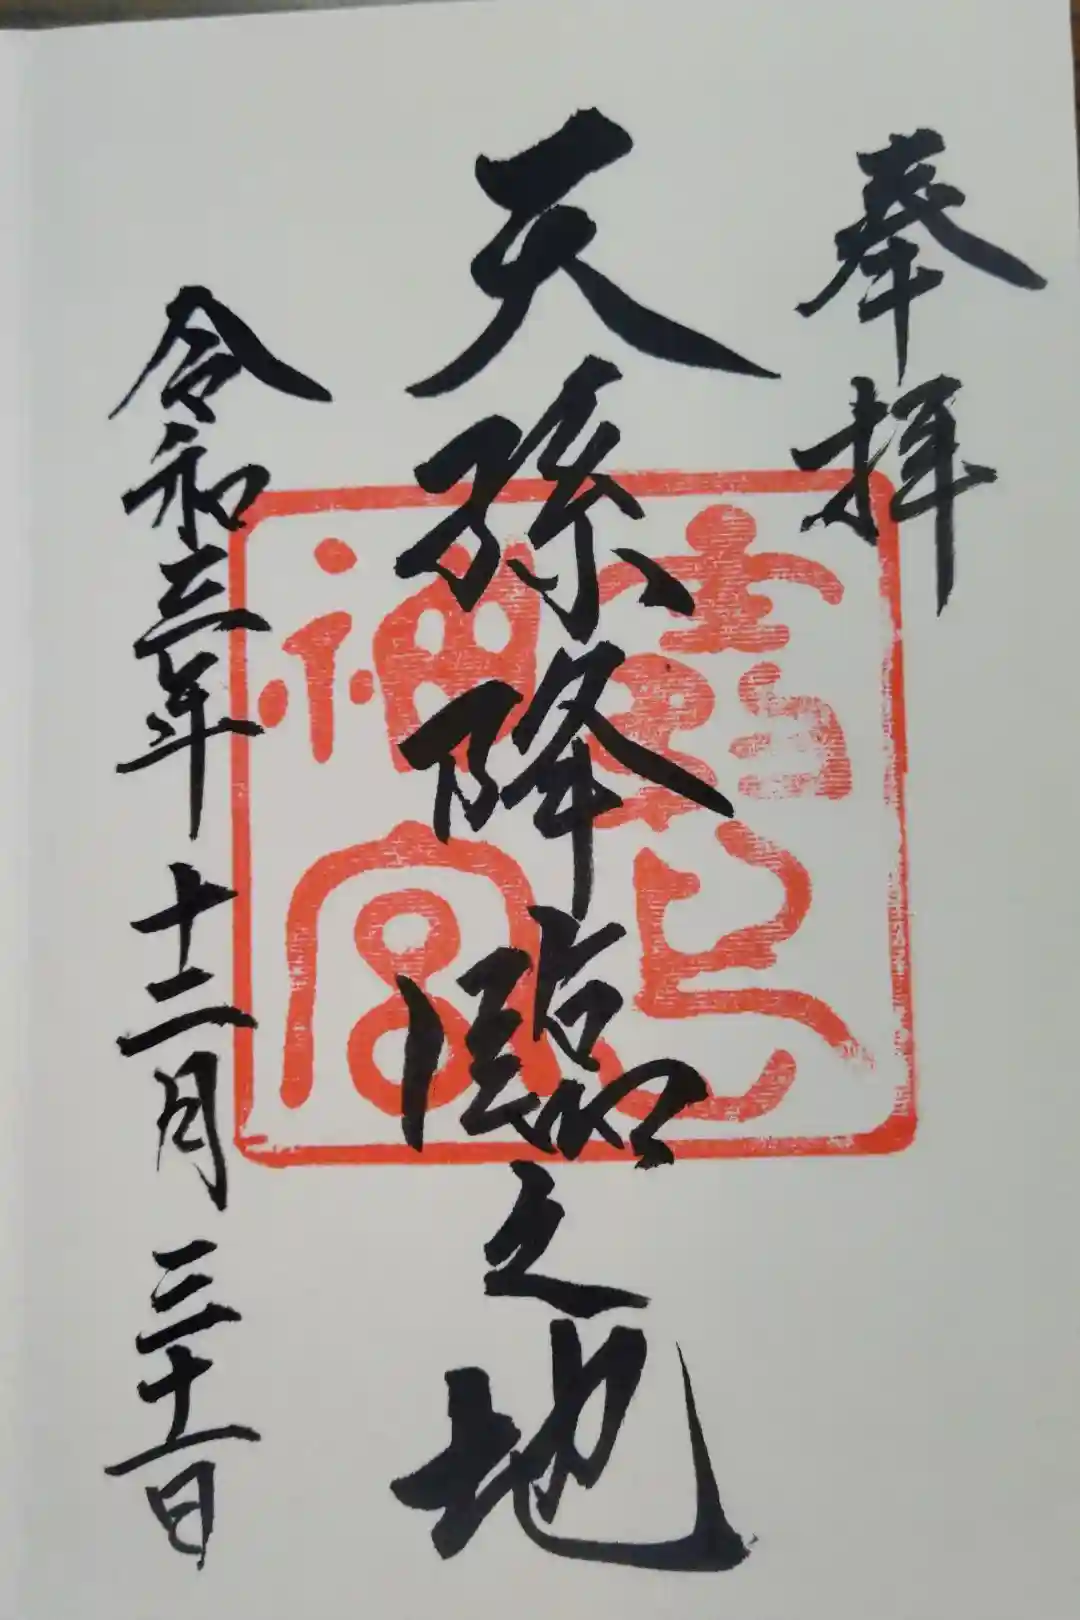 奉拝
天孫降臨之地
霧島神宮
令和三年十二月三十一日